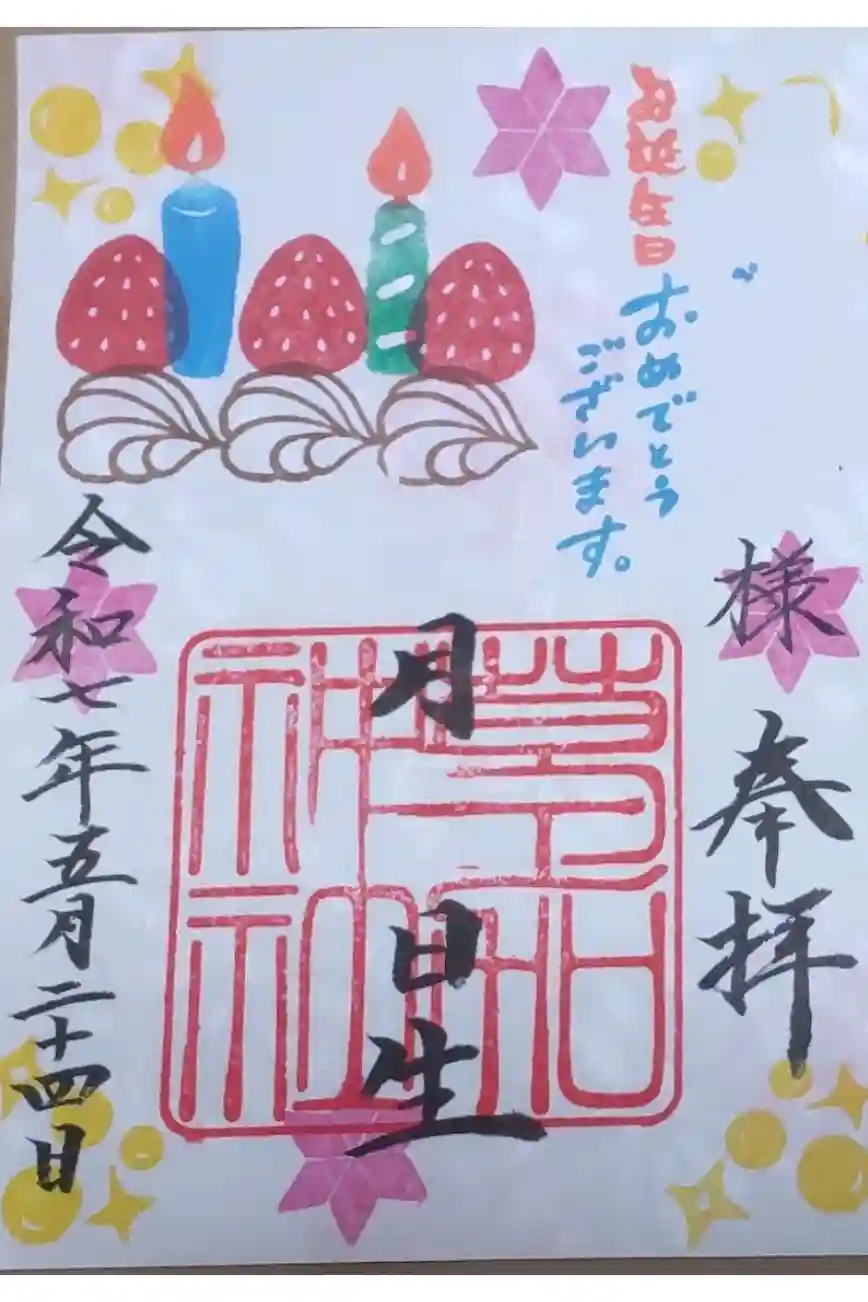 様
奉拝
お誕生日
おめでとう
ございます。
月
日生
神社
令和七年五月二十四日